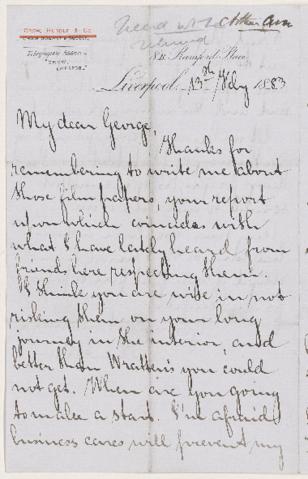 Telegraphic Address
Liverpool, 13th July 1883
My dear George,
Thanks for
remembering to write me about
those film papers, your report
upon which coincides with
what I have lately heard from
friends here respecting them.
I think you are wise in not
risking them on your long
journey in the interior, and
better than Wratten's you could
not get. When are you going
to make a start. I'm afraid
business cares will prevent my